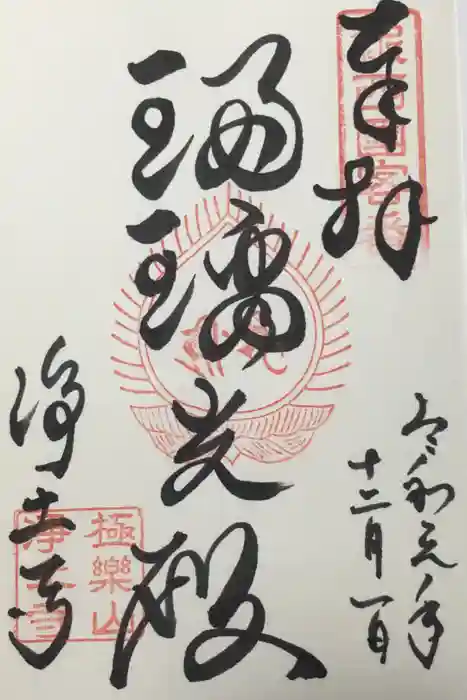 奉拝
瑠璃光殿
令和元年
十二月一日
浄土寺
極樂山
浄土寺